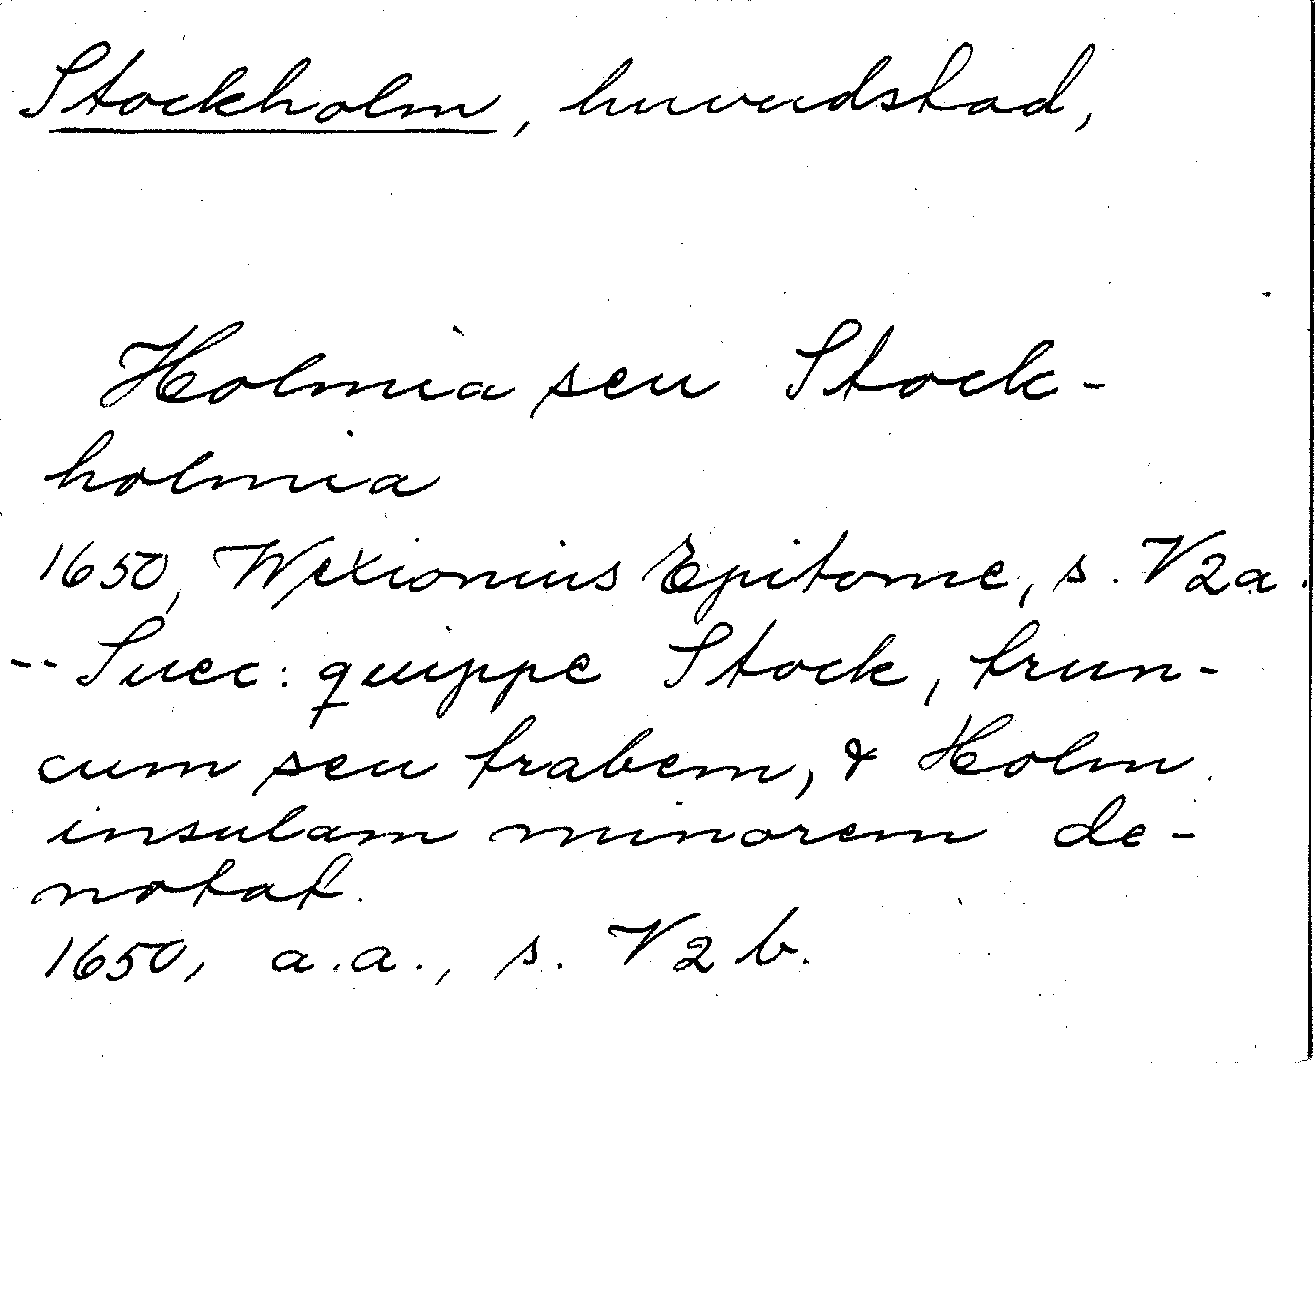 Stockholm, huvudstad,
Holmia seu Stock-
holmia
1650, Wexionius Epitome, s. V2a.
-- Suec: quippe Stock, trun-
cum seu trabem, & Holm
insulam minorem de-
notat.
1650, a.a., s. V2b.